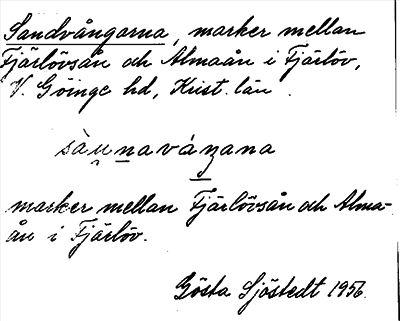 Sandvångarna, marker mellan
Fjärlövsån och Almaån i Fjärlöv,
V. Göinge hd, Krist. län.
sàu̯navánana
marker mellan Fjärlövsån och Alma-
ån i Fjärlöv.
Gösta Sjöstedt 1956.